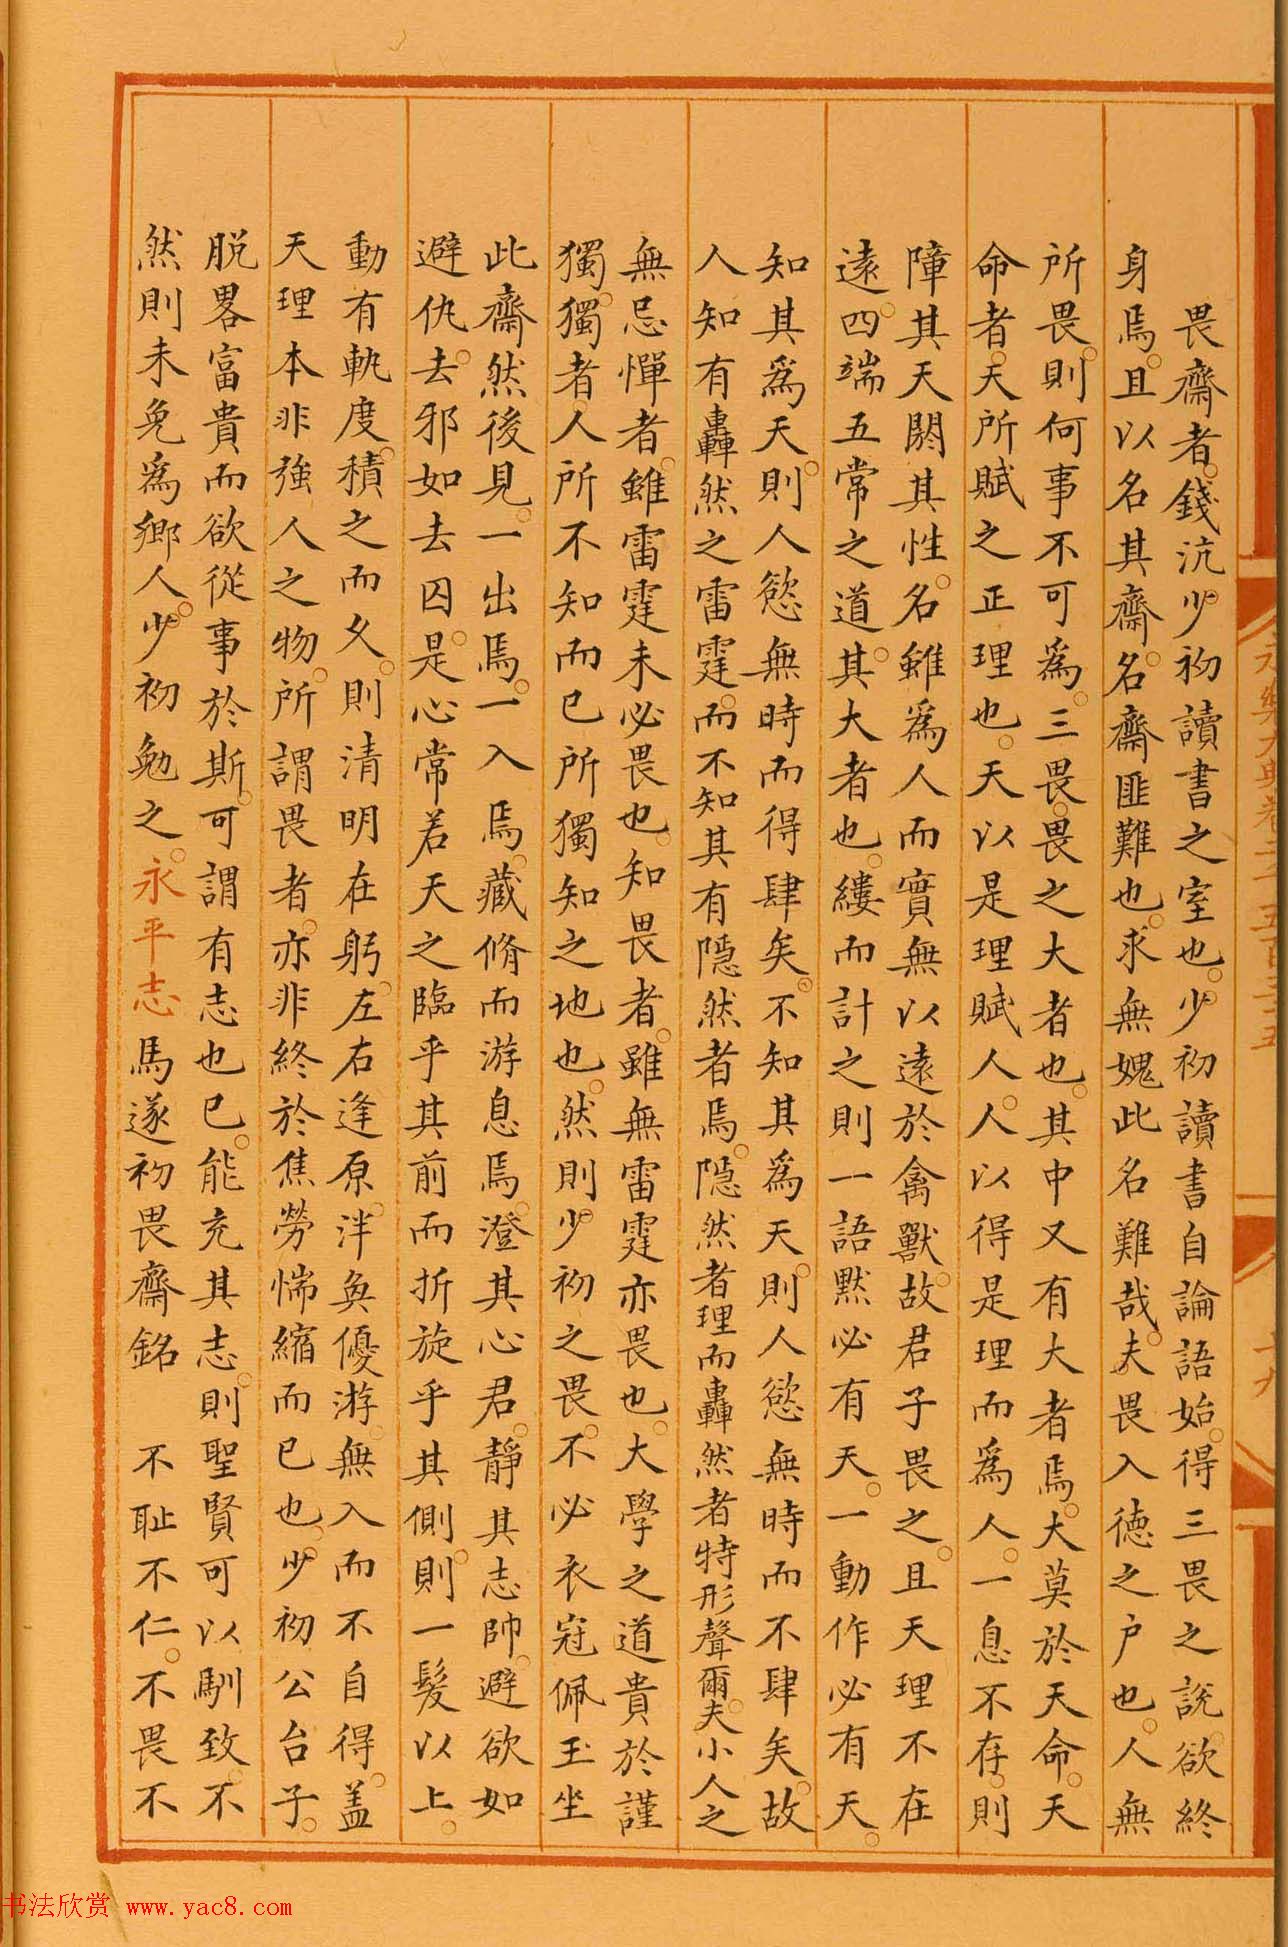 畏齋者錢沆少初讀書之室也少初讀書自論語始得三畏之說欲終
身焉且以名其齋名齋匪難也求無媿此名難哉夫畏入德之户也人無
所畏則何事不可爲三畏畏之大者也其中又有大者焉大莫於天命天
命者天所賦之正理也天以是理賦人人以得是理而爲人一息不存則
障其天閼其性名雖爲人而實無以遠於禽獸故君子畏之且天理不在
遠四端五常之道其大者也縷而計之則一語默必有天一動作必有天
知其爲天則人慾無時而得肆矣不知其爲天則人慾無時而不肆矣故
人知有轟然之雷霆而不知其有隱然者焉隱然者理而轟然者特形聲爾夫小人之
無忌憚者雖雷霆未必畏也知畏者雖無雷霆亦畏也大學之道貴於謹
獨獨者人所不知而已所獨知之地也然則少初之畏不必衣冠佩玉坐
此齋然後見一出焉一入焉藏脩而游息焉澄其心君靜其志帥避欲如
避仇去邪如去囚是心常若天之臨乎其前而折旋乎其側則一髮以上
動有軌度積之而久則清明在躬左右逢原泮奐優游無入而不自得蓋
天理本非強人之物所謂畏者亦非終於焦勞惴縮而已也少初公台子
脱畧富貴而欲從事於斯可謂有志也已能充其志則聖賢可以馴致不
然則未免爲鄉人少初勉之永平志馬遂初畏齋銘 不耻不仁不畏不
永樂大典卷二千五百三十五
十九
书法欣赏 www.yac8.com